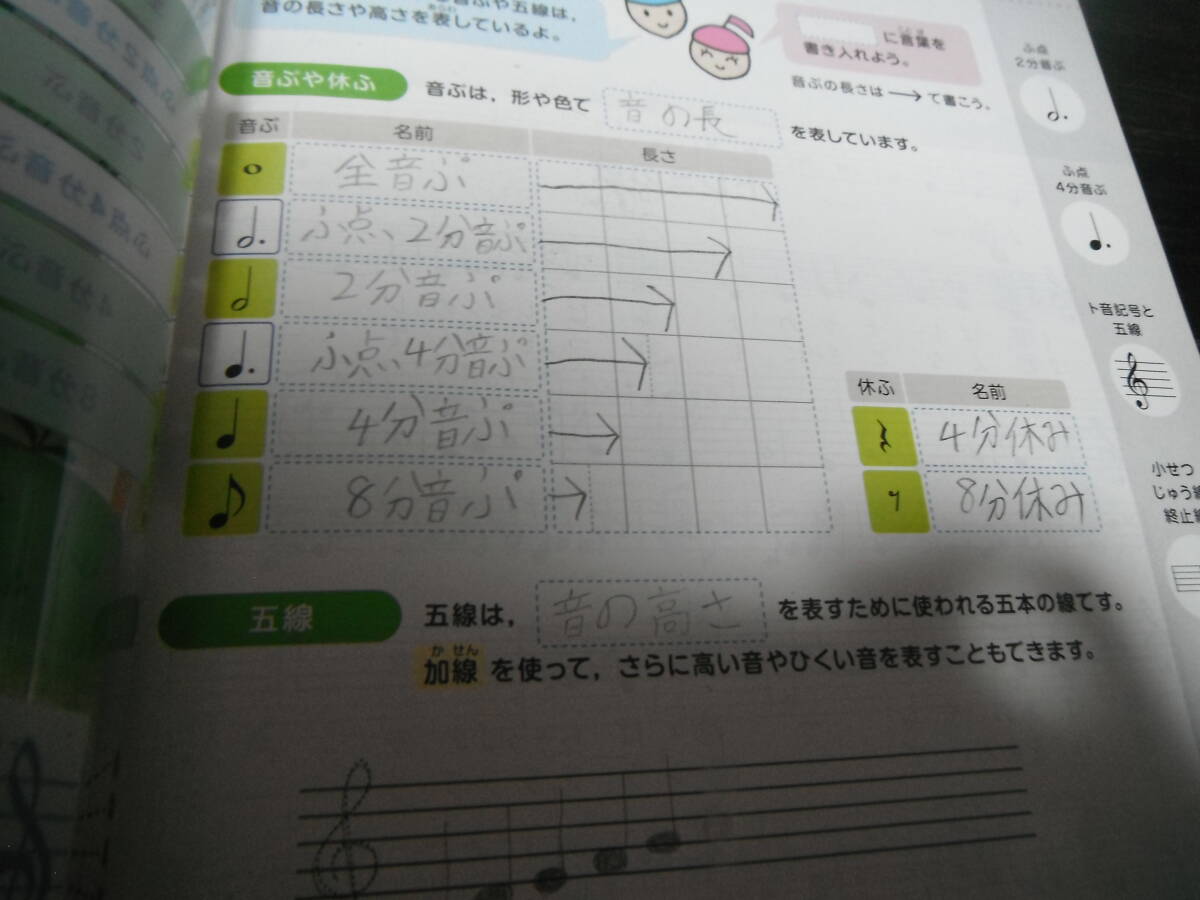 音ぶや五線は,
音の長さや高さを表しているよ。
に言葉を
書き入れよう。
音ぶの長さは→で書こう。
音ぶや休ふ
音ぶは,形や色で 音の長 を表しています。
音ぶ 名前 長さ
全音ぷ
ふ点、2分音ぷ
2分音ぷ
ふ点、4分音ぷ
4分音ぷ
8分音ぷ
休ふ 名前
4分休み
8分休み
五線
五線は, 音の高さ を表すために使われる五本の線です。
か せん
加線 を使って,さらに高い音やひくい音を表すこともできます。
ふ点
2分音ぶ
ふ点
4分音ぶ
ト音記号と
五線
小せつ
じゅう
終止